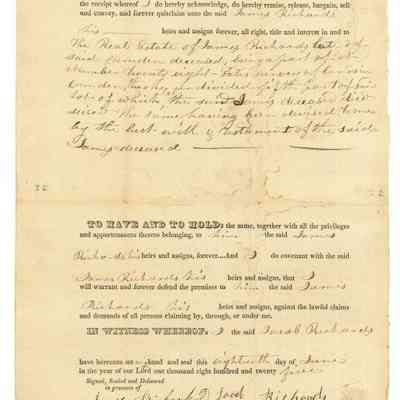 the receipt whereof I do hereby acknowledge, do hereby remise, release, bargain, sell
and convey, and forever quitclaim unto the said James Richards
his heirs and assigns forever, all right, title and interest in and to
The Real Estate of James Richards late of
said Camden deceased, being a part of
number twenty eight
undivided part of
lots of which, the said James deceased died
the same having been devised to me
by the last will & testament of the said
James deceased
TO HAVE AND TO HOLD, the same, together with all the privileges
and appurtenances thereto belonging, to him the said James
Richards his heirs and assigns, forever....And I do covenant with the said
James Richards his heirs and assigns, that I
will warrant and forever defend the premises to him the said James
Richards his heirs and assigns, against the lawful claims
and demands of all persons claiming by, through, or under me.
IN WITNESS WHEREOF, I the said Jacob Richards
have hereunto set my hand and seal this eighteenth day of June
in the year of our Lord one thousand eight hundred and twenty five
Signed, Sealed and Delivered
in presence of
Jacob Richards